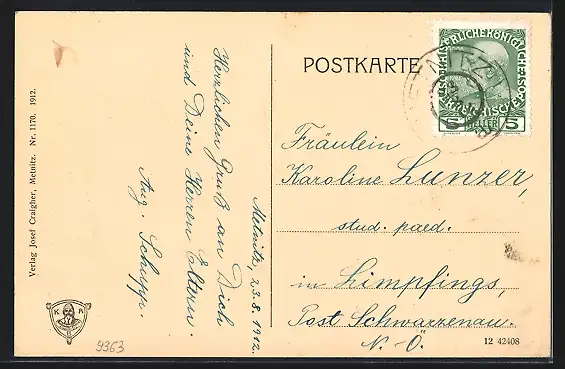 Verlag Josef Craigher, Metnitz. Nr. 1170. 1912.
Metnitz, 23.8.1912.
Herzlichen Gruß an Dich
und Deine Herren Eltern.
Aug. Schupp.
K A
9363
POSTKARTE
5 HELLER 5
Fräulein
Karoline Lunzer,
stud. paed.
in Limpfings,
Post Schwarzenau.
N. Ö.
12 42408